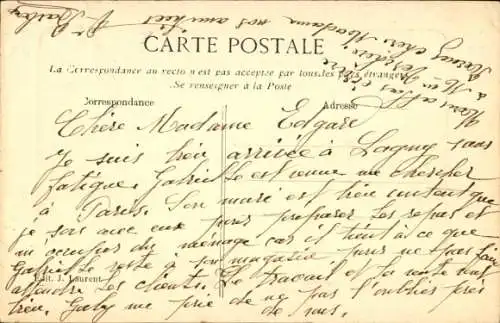 CARTE POSTALE
La Correspondance au recto n'est pas acceptée par tous les pays étrangers
Se renseigner à la Poste
Correspondance
Adresse
Chère Madame Edgare
Je suis bien arrivée à Lagny sans
fatigue. Gabrielle est venue me chercher
à Paris. Son mari est très content que
je sois avec eux pour préparer les repas et
m'occuper du ménage car il tient à ce que
Gabrielle reste à son magasin pour ne pas faire
attendre les clients. Le travail et la vente vont
bien. Gaby me prie de ne pas l'oublier près
de vous.
Edit. J. Laurent
chère Madame nos amitiés